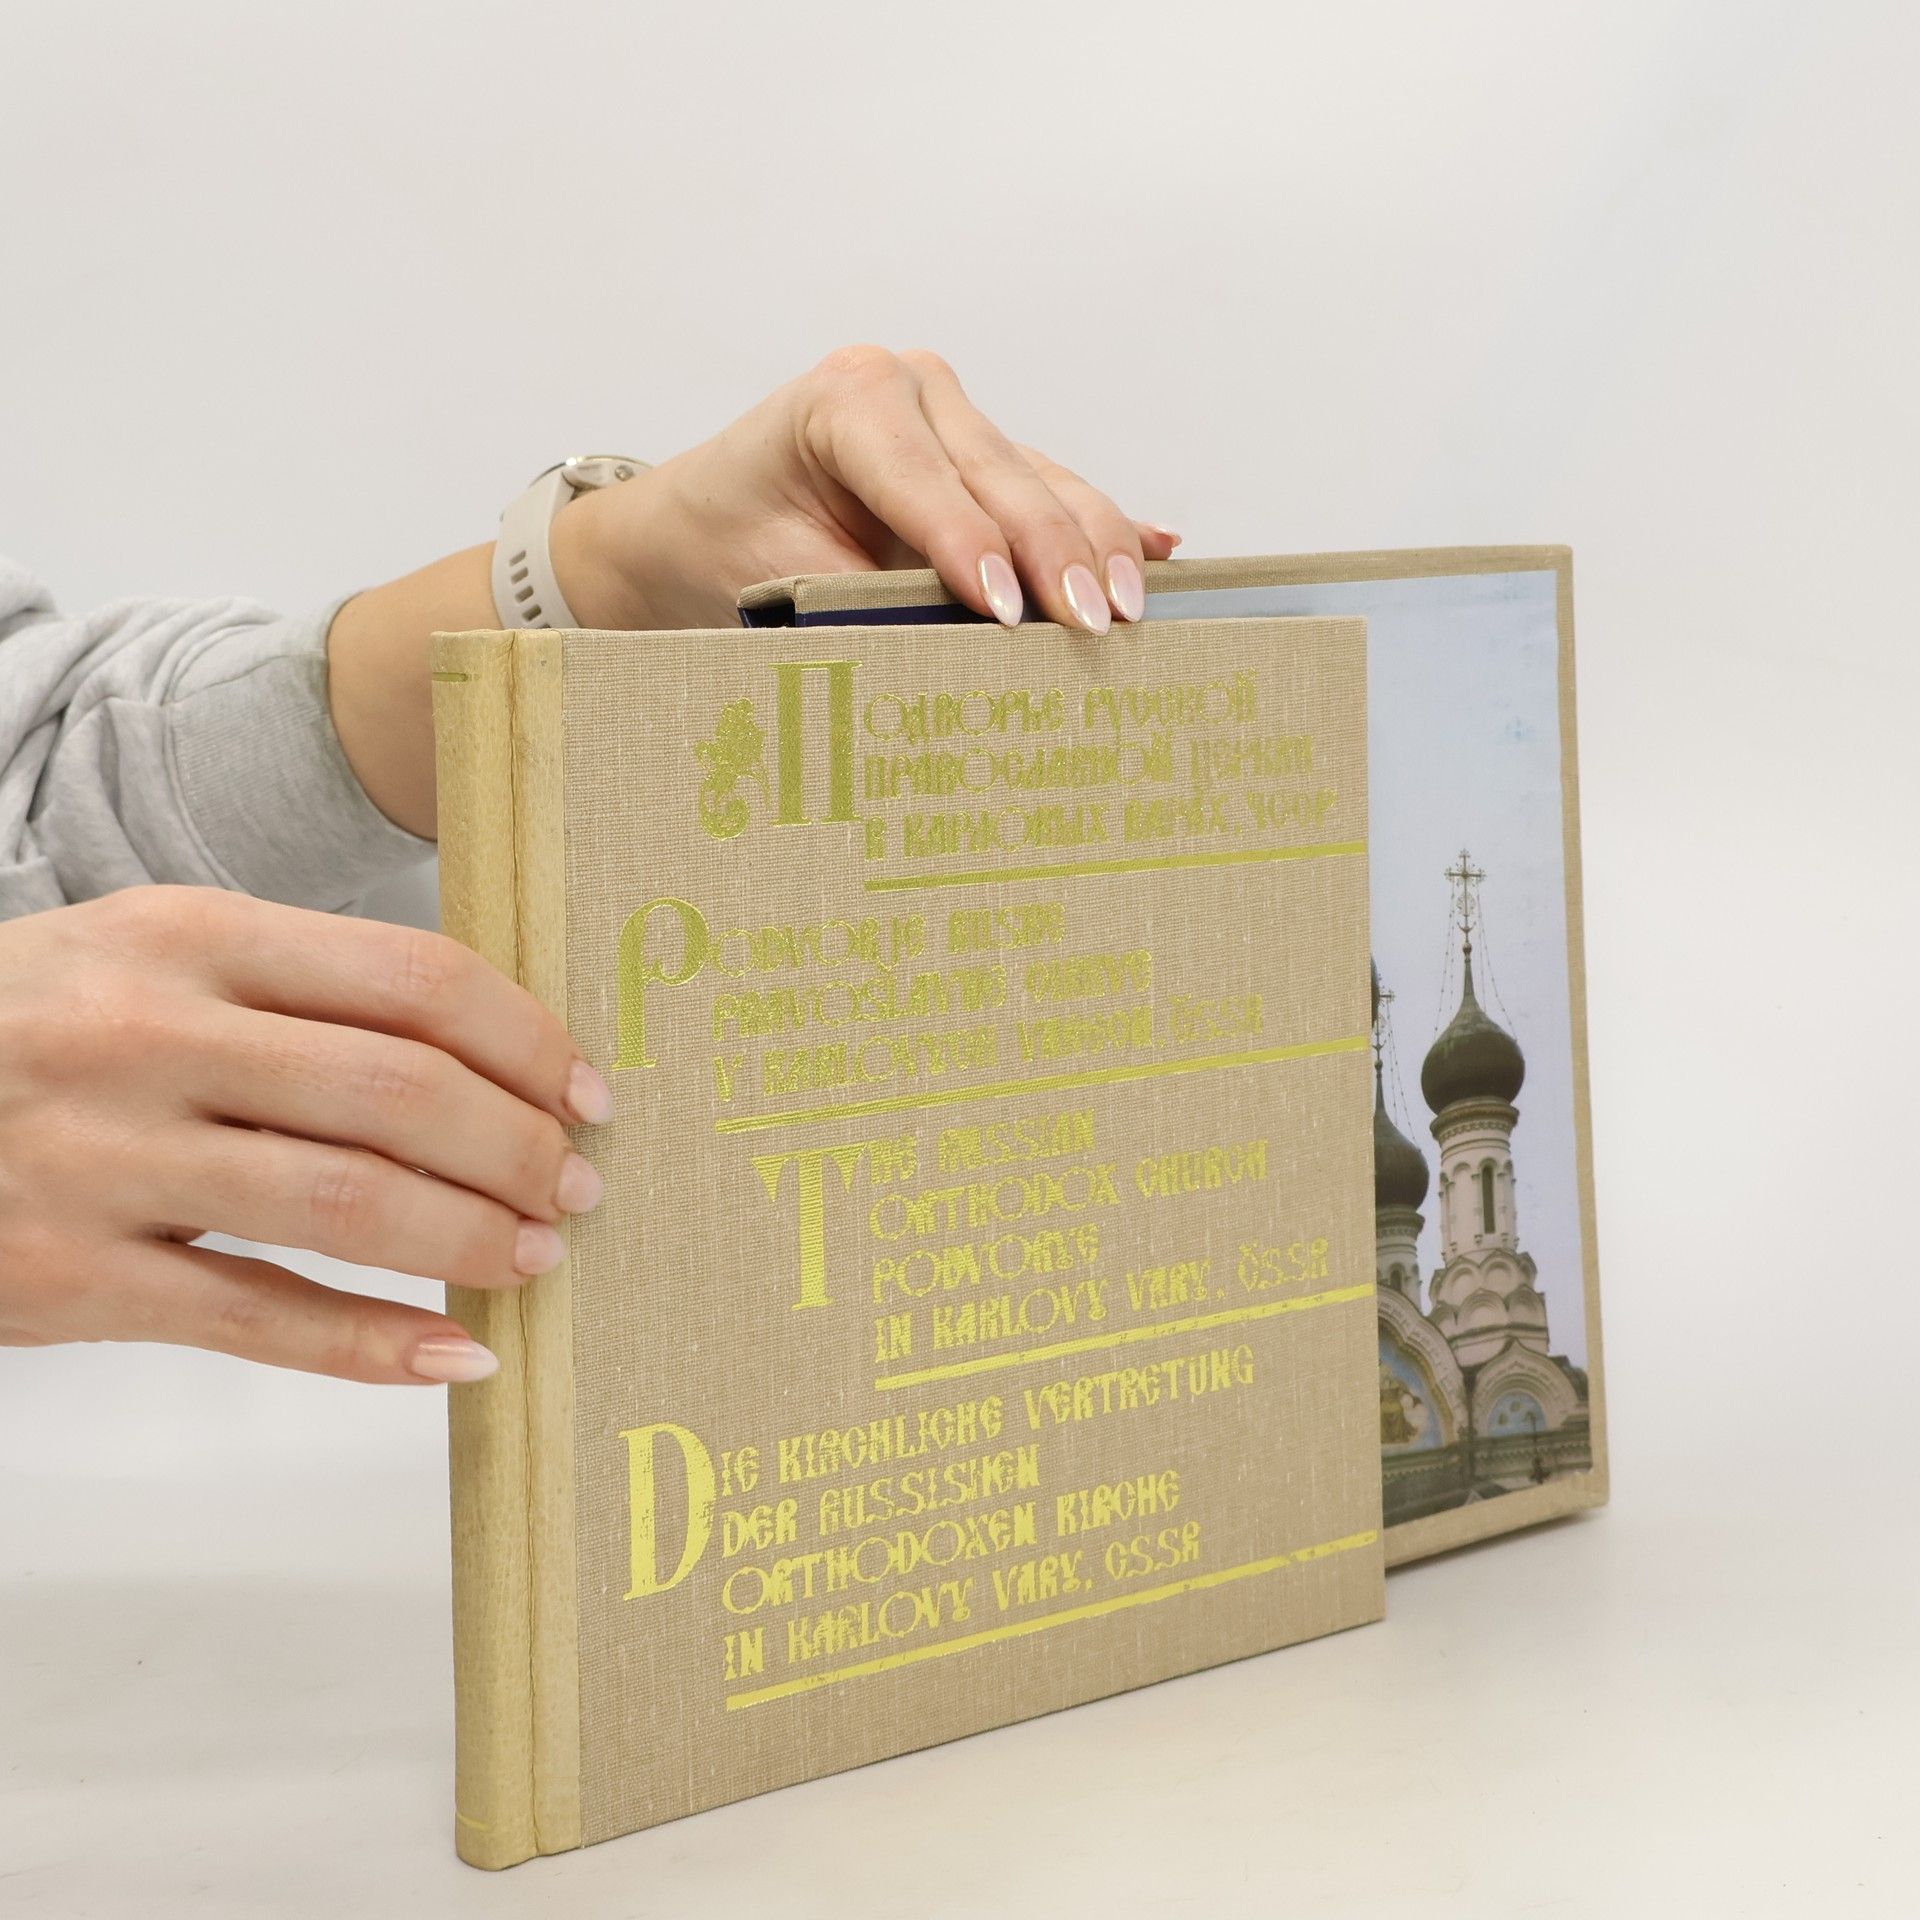 Подворье Русской
православной церкви
в Карловых Варах, ЧССР
Podvorje Ruské
pravoslavné cirkve
v Karlových Varech, ČSSR
The Russian
Orthodox Church
Podvorye
in Karlovy Vary, ČSSR
Die kirchliche Vertretung
der Russishen
Orthodoxen Kirche
in Karlovy Vary, CSSR